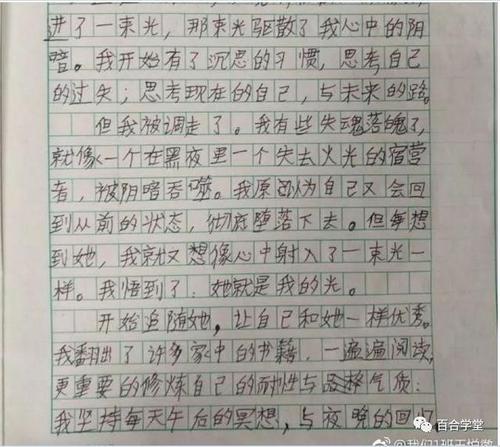 进了一束光，那束光驱散了我心中的阴
暗。我开始有了沉思的习惯，思考自己
的过失；思考现在的自己，与未来的路。
但我被调走了。我有些失魂落魄了，
就像一个在黑夜里一个失去火光的宿营
者，被阴暗吞噬。我原以为自己又会回
到从前的状态，彻底堕落下去。但每想
到她，我就又想像心中射入了一束光一
样。我悟到了：她就是我的光。
开始追随她，让自己和她一样优秀。
我翻出了许多家中的书籍，一遍遍阅读，
更重要的修炼自己的耐性与品格气质：
我坚持每天午后的冥想，与夜晚的回忆
百合学堂
@我们1班王悦微